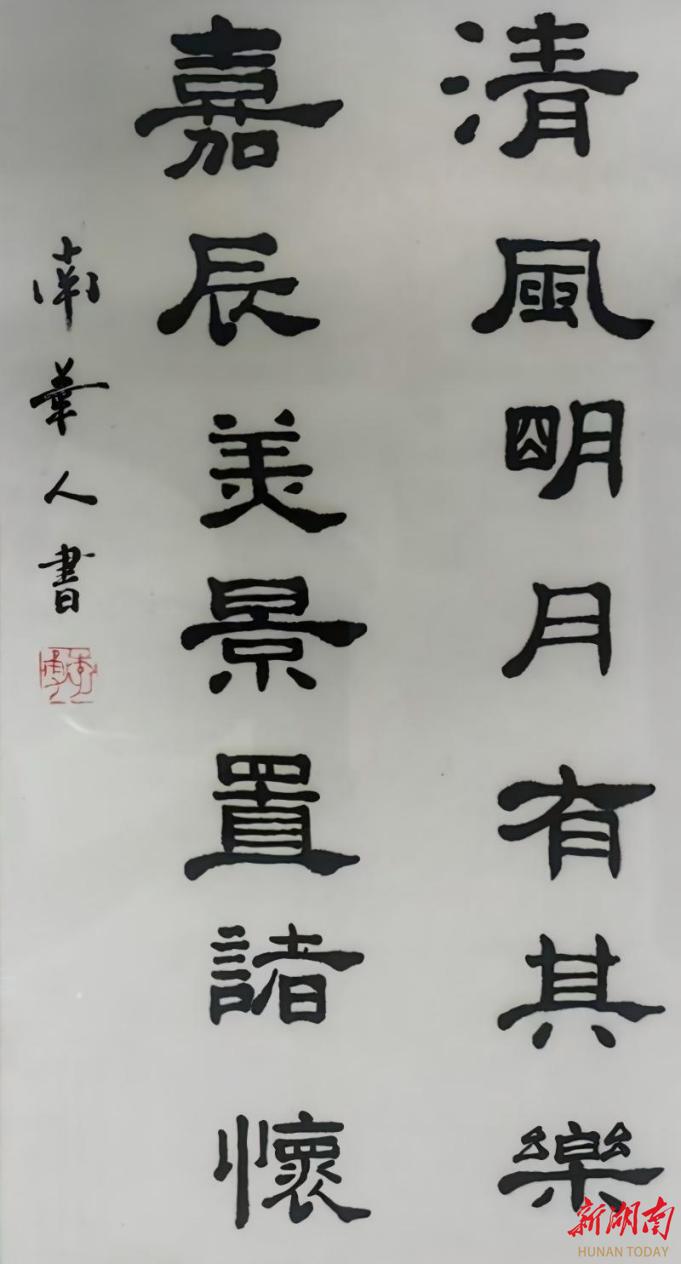 清風明月有其樂
嘉辰美景置諸懷
南華人書
新湖南
HUNAN TODAY